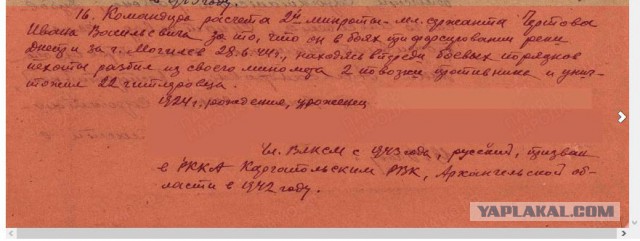 16. Командира расчета 2й минроты – мл. сержанта
Ивана Васильевича за то, что он в боях при форсировании реки
Днепр и за г. Могилев 28.6.44г., находясь впереди боевых порядков
пехоты разбил из своего миномета 2 повозки противника и унич-
тожил 22 гитлеровца.
1924г. рождения, уроженец
Чл. ВЛКСМ с 1943 года, русский, призван
в РККА Каргопольским РВК, Архангельской об-
ласти в 1942 году.
YAPLAKAL.COM